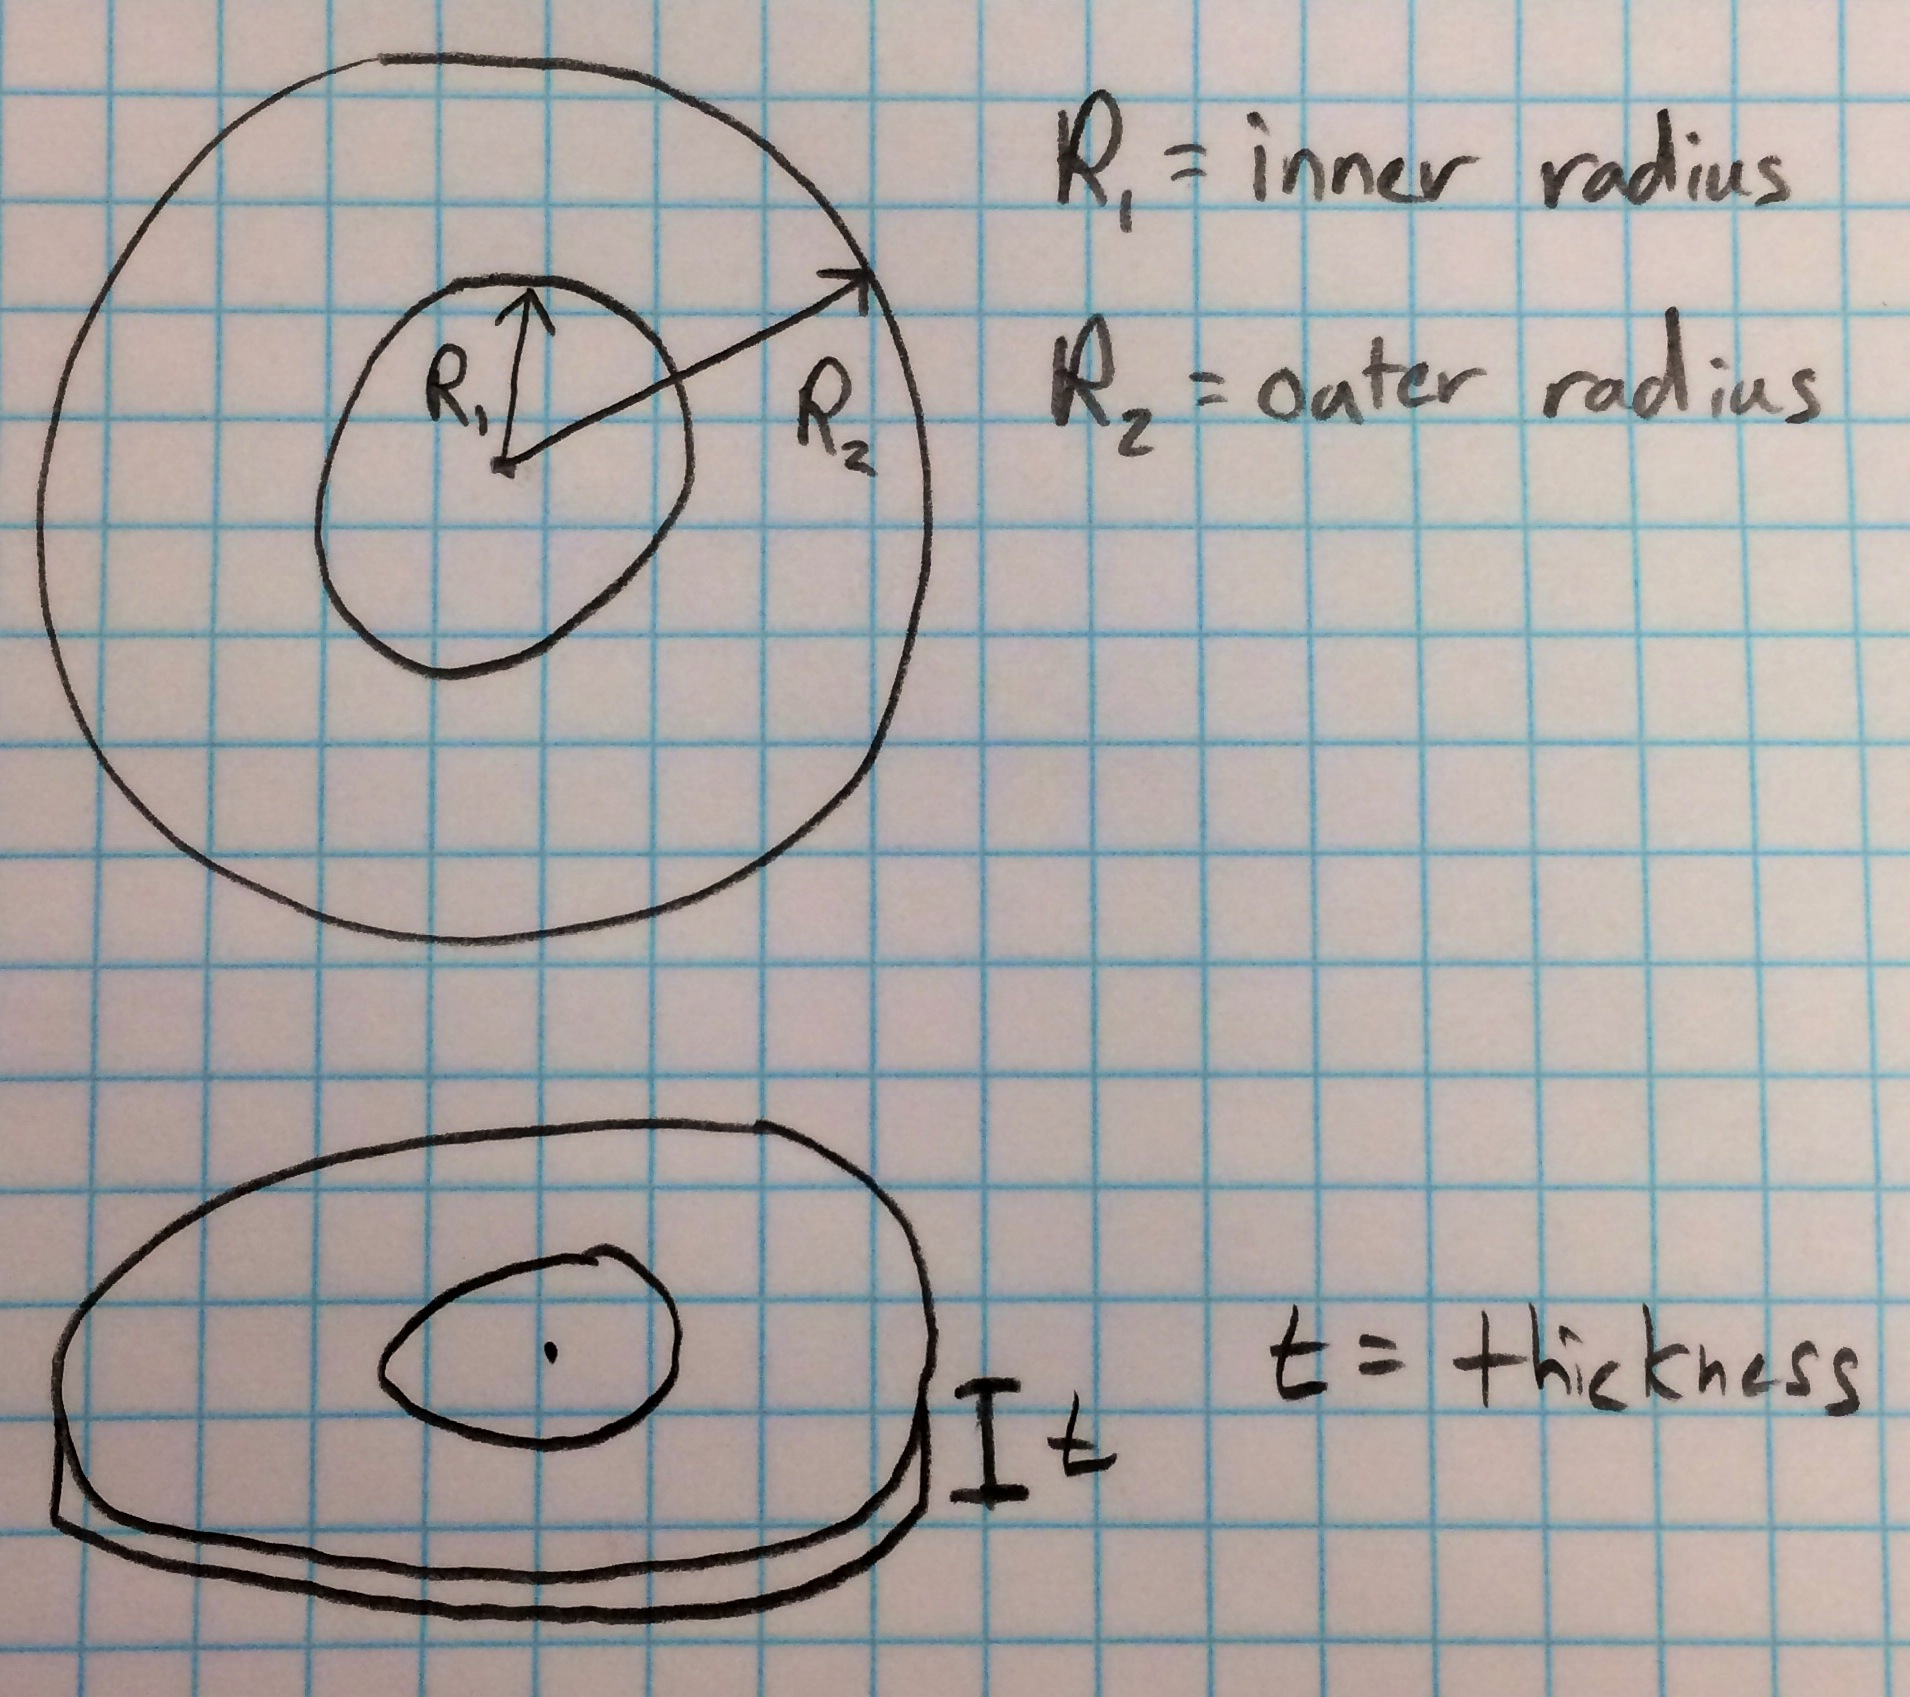 R₁ = inner radius
R₁
R₂
R₂ = outer radius
t
t = thickness